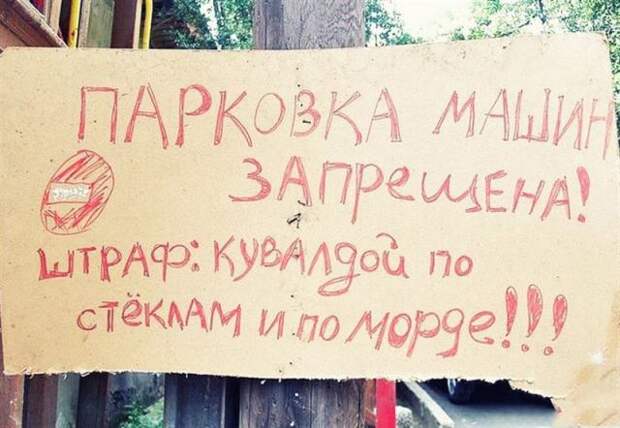 ПАРКОВКА МАШИН
ЗАПРЕЩЕНА!
ШТРАФ: КУВАЛДОЙ ПО
СТЁКЛАМ И ПО МОРДЕ!!!